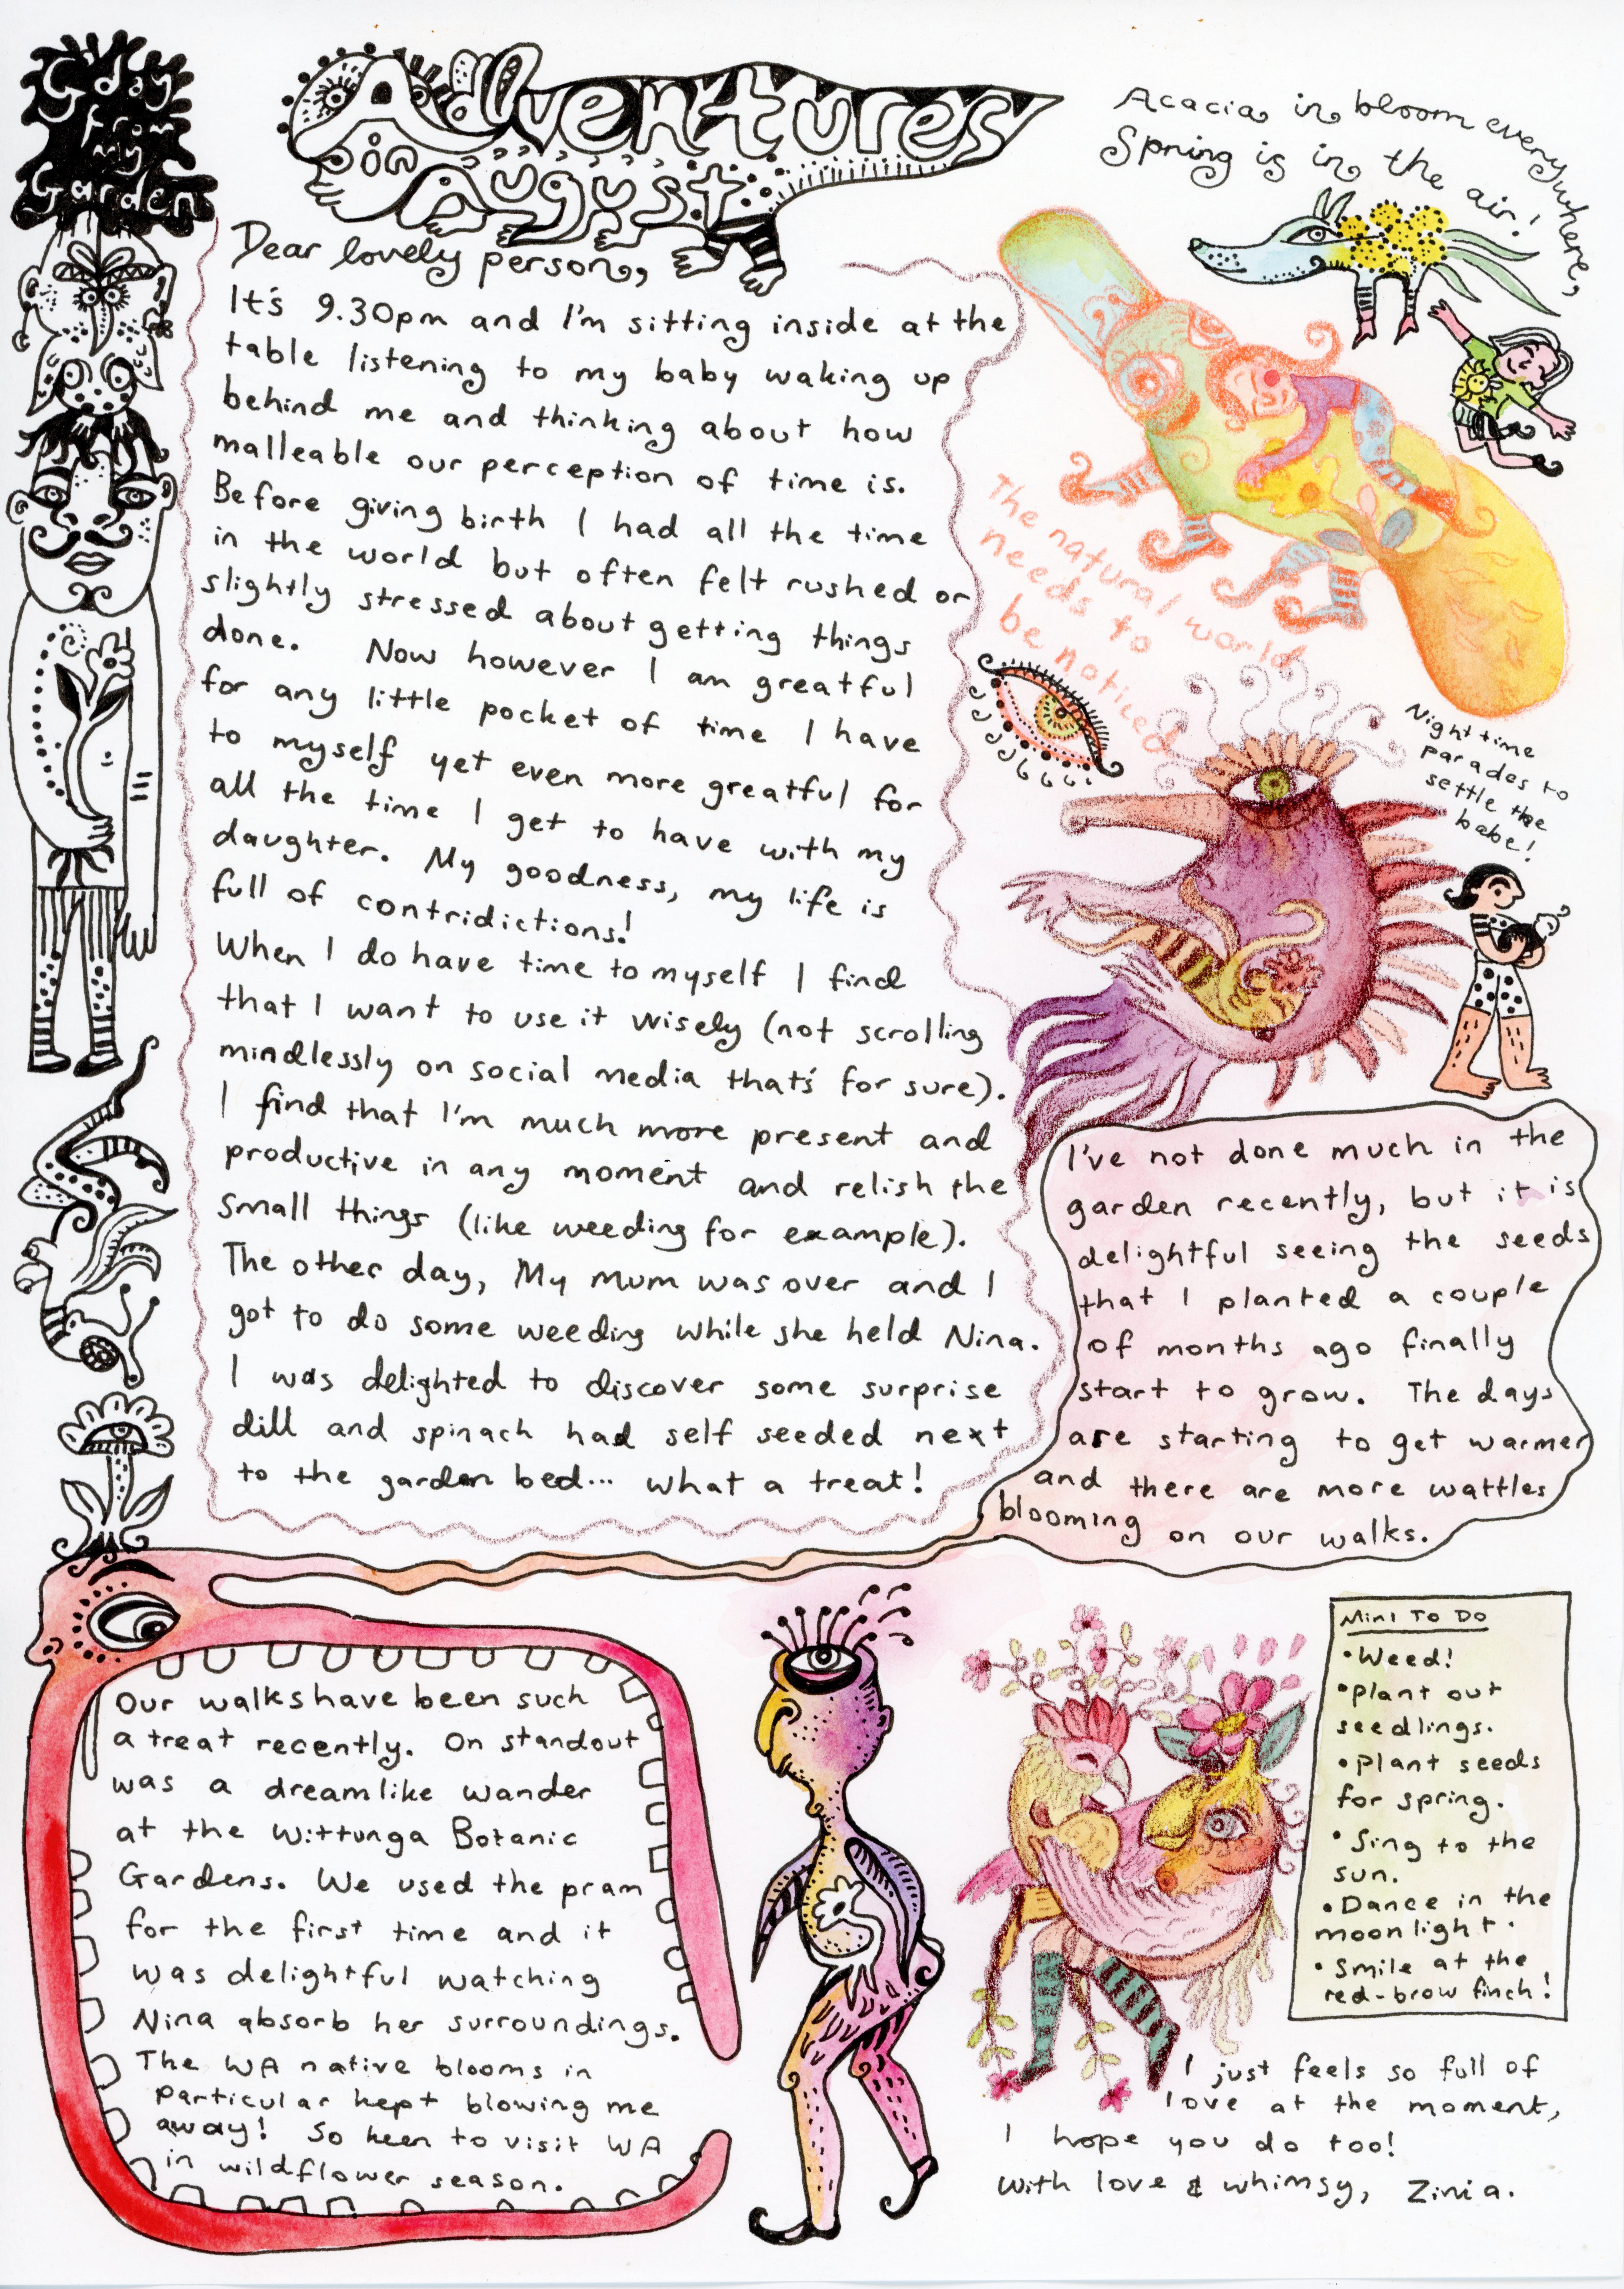 G'day
from
my
Garden
Adventures
in August
Acacia in bloom everywhere,
Spring is in the air!
Dear lovely person,
It's 9.30pm and I'm sitting inside at the
table listening to my baby waking up
behind me and thinking about how
malleable our perception of time is.
Before giving birth I had all the time
in the world but often felt rushed or
slightly stressed about getting things
done. Now however I am greatful
for any little pocket of time I have
to myself yet even more greatful for
all the time I get to have with my
daughter. My goodness, my life is
full of contridictions!
When I do have time to myself I find
that I want to use it wisely (not scrolling
mindlessly on social media that's for sure).
I find that I'm much more present and
productive in any moment and relish the
small things (like weeding for example).
The other day, My mum was over and I
got to do some weeding while she held Nina.
I was delighted to discover some surprise
dill and spinach had self seeded next
to the garden bed... what a treat!
The natural world
needs to
be noticed
Night time
parades to
settle the
babe!
I've not done much in the
garden recently, but it is
delightful seeing the seeds
that I planted a couple
of months ago finally
start to grow. The days
are starting to get warmer
and there are more wattles
blooming on our walks.
Our walks have been such
a treat recently. On standout
was a dreamlike wander
at the Wittunga Botanic
Gardens. We used the pram
for the first time and it
was delightful watching
Nina absorb her surroundings.
The WA native blooms in
particular kept blowing me
away! So keen to visit WA
in wildflower season.
Mini To Do
• Weed!
• plant out
seedlings.
• Plant seeds
for spring.
• Sing to the
sun.
• Dance in the
moonlight.
• Smile at the
red-brow finch!
I just feels so full of
love at the moment,
I hope you do too!
with love & whimsy, Zinia.